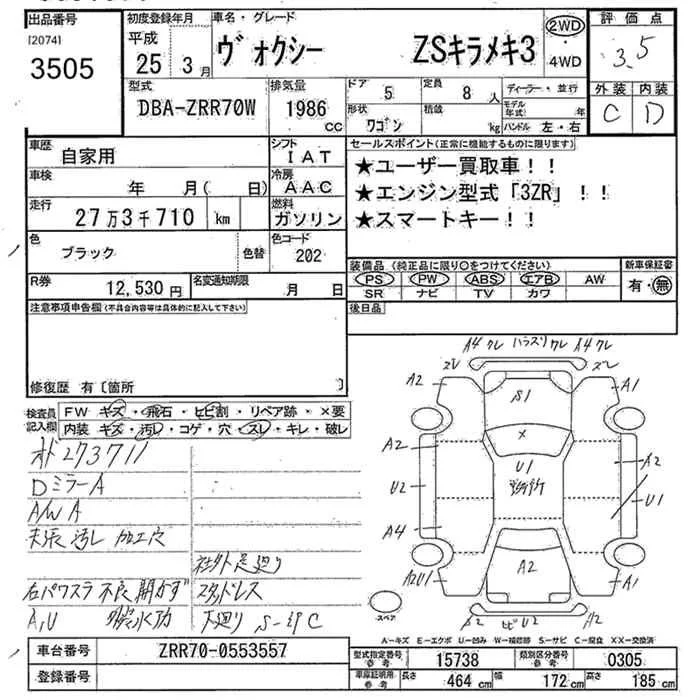 出品番号
[2074]
3505
初度登録年月
平成
25 3月
車名・グレード
ヴォクシー ZSキラメキ3
2WD
・
4WD
評価点
3.5
外装 内装
C D
型式
DBA-ZRR70W
排気量
1986 CC
ドア 5
定員 8人
形状 ワゴン
積載 kg
ディーラー・並行
モデル年式 年
ハンドル 左・右
車歴
自家用
シフト
IAT
車検
年 月( 日)
冷房
AAC
走行
27万3千710 km
燃料
ガソリン
色
ブラック
色替
色コード
202
R券
12,530円
名変通知期限
月 日
セールスポイント(正常に機能するものに限ります)
★ユーザー買取車!!
★エンジン型式「3ZR」!!
★スマートキー!!
装備品 (純正品に限り○をつけてください)
PS PW ABS エアB AW
SR ナビ TV カワ
新車保証書
有・無
後日品
注意事項申告欄(不具合内容等は具体的に記入して下さい)
修復歴 有〔箇所 〕
検査員記入欄
FW キズ・飛石・ヒビ割・リペア跡・×要
内装 キズ・汚レ・コゲ・穴・スレ・キレ・破レ
273711
DミラーA
A/W A
汚レ 加工穴
社外足廻り
右パワスラ不良開かず スタッドレス
下廻り S-サビ C
A4 クレ ハラスリ クレ A4 クレ
ズレ ズレ
A2 S1 A1
X
A2 U1 A2
U2 U1
A4
A2U1 A2 A1
スペア
U2 A2
A-キズ E-エクボ U-凹み W-補修跡 S-サビ C-腐食 XX-交換済
車台番号
ZRR70-0553557
登録番号
型式指定番号 参考 15738
類別区分番号 参考 0305
車庫証明用 参考 長さ 464 cm 幅 172 cm 高さ 185 cm